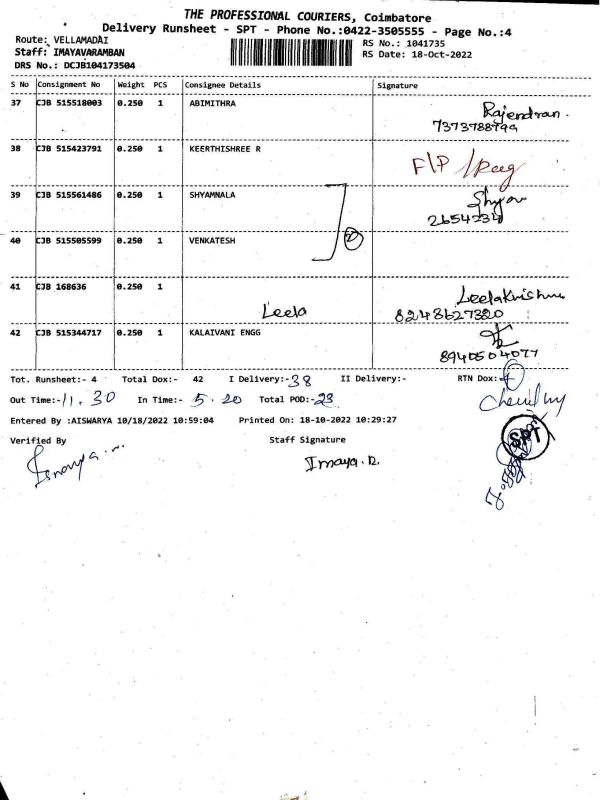 THE PROFESSIONAL COURIERS, Coimbatore
Delivery Runsheet - SPT - Phone No.:0422-3505555 - Page No.:4
Route: VELLAMADAI RS No.: 1041735
Staff: IMAYAVARAMBAN RS Date: 18-Oct-2022
DRS No.: DCJB104173504
S No Consignment No Weight PCS Consignee Details Signature
37 CJB 515518003 0.250 1 ABIMITHRA Rajendran.
7373788799
38 CJB 515423791 0.250 1 KEERTHISHREE R F/P
39 CJB 515561486 0.250 1 SHYAMNALA Shyam
2654234
40 CJB 515505599 0.250 1 VENKATESH 2
41 CJB 168636 0.250 1 Leela Leelakrishna
8248627320
42 CJB 515344717 0.250 1 KALAIVANI ENGG
8940504077
Tot. Runsheet:- 4 Total Dox:- 42 I Delivery:-38 II Delivery:- RTN Dox:-4
Out Time:-11.30 In Time:- 5.20 Total POD:-23
Entered By :AISWARYA 10/18/2022 10:59:04 Printed On: 18-10-2022 10:29:27
Verified By Staff Signature
Imaya. R.
SPT